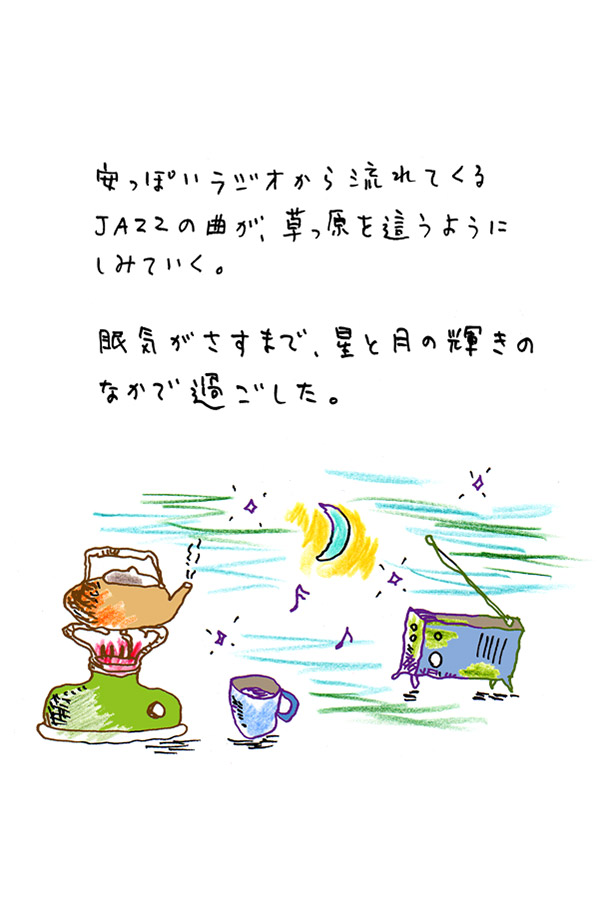 安っぽいラジオから流れてくる
JAZZの曲が、草っ原を這うように
しみていく。
眠気がさすまで、星と月の輝きの
なかで過ごした。